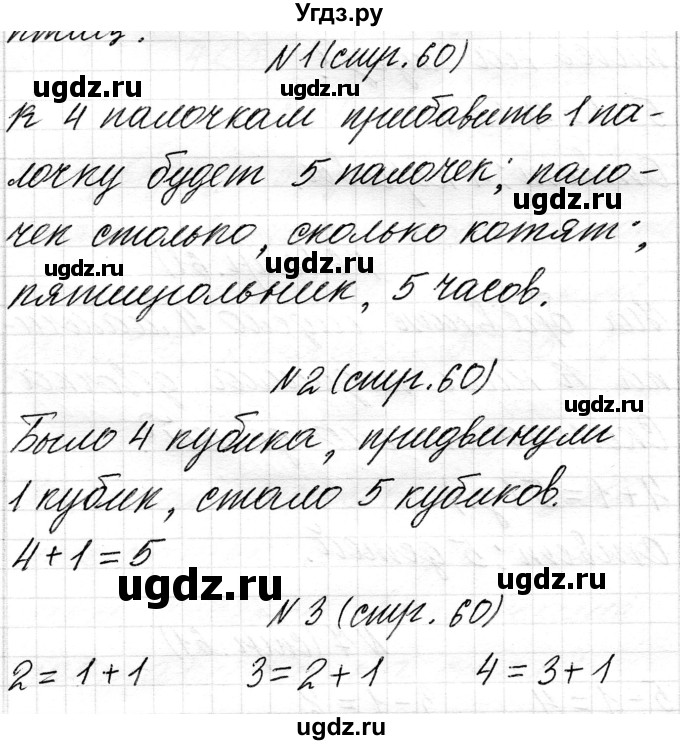 Угдз.ру
N1 (стр. 60)
ugdz.ru ugdz.ru
К 4 палочкам прибавить 1 па-
лочку будет 5 палочек; пало-
ugdz.ru
чек столько, сколько котят;
ugdz.ru ugdz.ru
пятиугольник, 5 часов.
N2 (стр. 60)
ugdz.ru
Было 4 кубика, придвинули
1 кубик, стало 5 кубиков.
4+1=5
ugdz.ru
N3 (стр. 60)
ugdz.ru
2=1+1 3=2+1 4=3+1
ugdz.ru